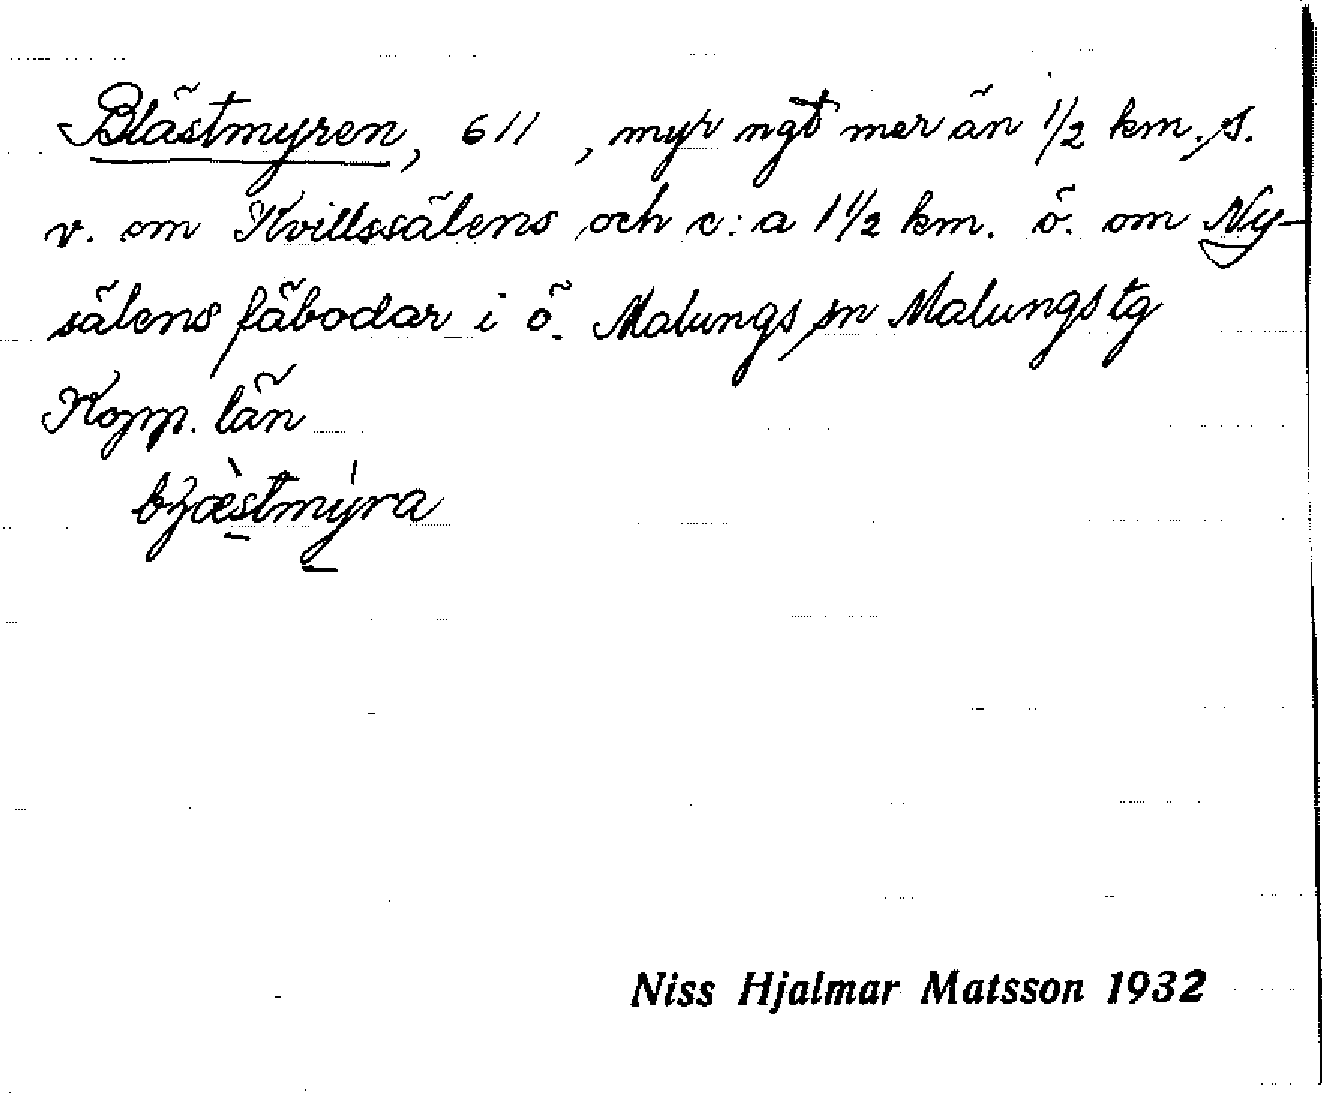 Blästmyren, 611 , myr ngt mer än 1/2 km. s.
v. om Kvillssälens och c:a 1 1/2 km. ö. om Ny-
sälens fäbodar i ö. Malungs sn Malungs tg
Kopp. län
bʒæ̀stmýra
Niss Hjalmar Matsson 1932